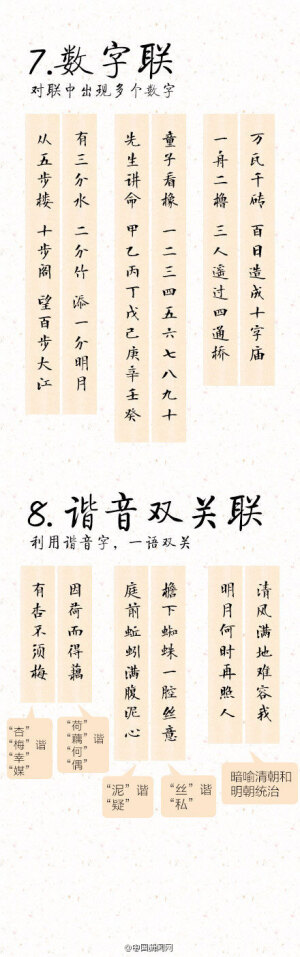 7.数字联
对联中出现多个数字
万瓦千砖 百日造成十字庙
一舟二橹 三人遥过四通桥
童子看椽 一二三四五六七八九十
先生讲命 甲乙丙丁戊己庚辛壬癸
有三分水 二分竹 添一分明月
从五步楼 十步阁 望百步大江
8.谐音双关联
利用谐音字，一语双关
清风满地难容我
明月何时再照人
檐下蜘蛛一腔丝意
庭前蚯蚓满腹泥心
因荷而得藕
有杏不须梅
暗喻清朝和
明朝统治
“丝” 谐
“私”
“泥” 谐
“疑”
“荷” 谐
“藕”
“何”
“偶”
“杏” 谐
“梅”
“幸”
“媒”